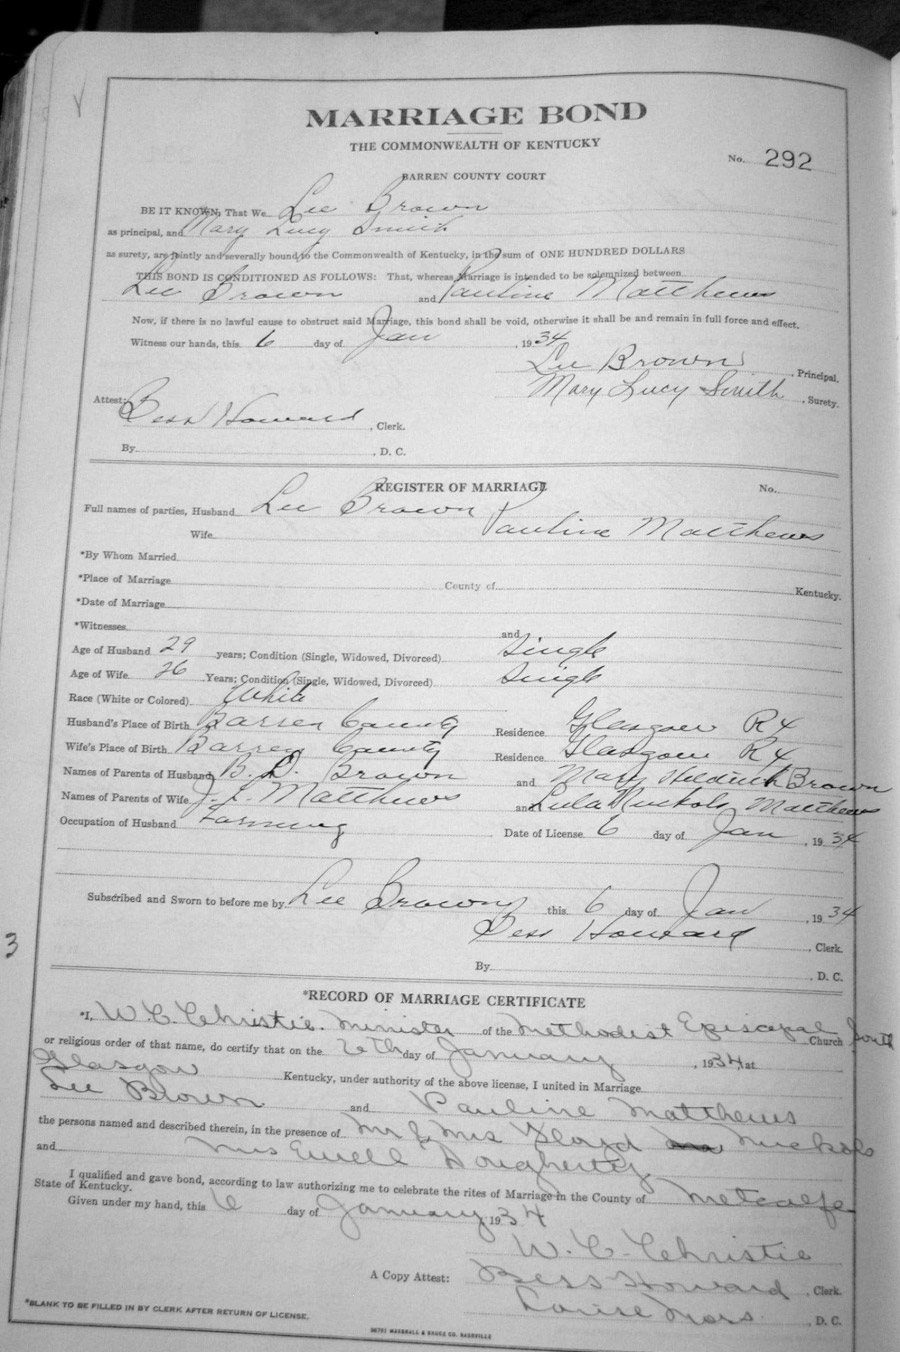 MARRIAGE BOND
THE COMMONWEALTH OF KENTUCKY
No. 292
BARREN COUNTY COURT
BE IT KNOWN, That We Lee Brown
as principal, and Mary Lucy Smith
as surety, are jointly and severally bound to the Commonwealth of Kentucky, in the sum of ONE HUNDRED DOLLARS
THIS BOND IS CONDITIONED AS FOLLOWS: That, whereas Marriage is intended to be solemnized between
Lee Brown and Pauline Matthews
Now, if there is no lawful cause to obstruct said Marriage, this bond shall be void, otherwise it shall be and remain in full force and effect.
Witness our hands, this 6 day of Jan , 1934
Lee Brown , Principal.
Mary Lucy Smith , Surety.
Attest: Bess Howard , Clerk.
By , D. C.
REGISTER OF MARRIAGE No.
Full names of parties, Husband Lee Brown
Wife Pauline Matthews
*By Whom Married
*Place of Marriage County of Kentucky.
*Date of Marriage
*Witnesses and
Age of Husband 29 years; Condition (Single, Widowed, Divorced) Single
Age of Wife 26 Years; Condition (Single, Widowed, Divorced) Single
Race (White or Colored) White
Husband's Place of Birth Barren County Residence Glasgow R4
Wife's Place of Birth Barren County Residence Glasgow R4
Names of Parents of Husband B. D. Brown and Mary Brown
Names of Parents of Wife J. L. Matthews and Lula Nuckols Matthews
Occupation of Husband Farming Date of License 6 day of Jan , 1934
Subscribed and Sworn to before me by Lee Brown this 6 day of Jan , 1934
Bess Howard , Clerk.
3
By , D. C.
*RECORD OF MARRIAGE CERTIFICATE
*I, W. C. Christie. Minister of the Methodist Episcopal Church South
or religious order of that name, do certify that on the 6th day of January , 1934, at
Glasgow Kentucky, under authority of the above license, I united in Marriage
Lee Brown and Pauline Matthews
the persons named and described therein, in the presence of Mr & Mrs Floyd Nuckols
and Mrs Ewell Dougherty
I qualified and gave bond, according to law authorizing me to celebrate the rites of Marriage in the County of Metcalfe
State of Kentucky.
Given under my hand, this 6 day of January, 1934
W. C. Christie
A Copy Attest: Bess Howard , Clerk.
Louise , D. C.
*BLANK TO BE FILLED IN BY CLERK AFTER RETURN OF LICENSE.
MARSHALL & BRUCE CO. NASHVILLE